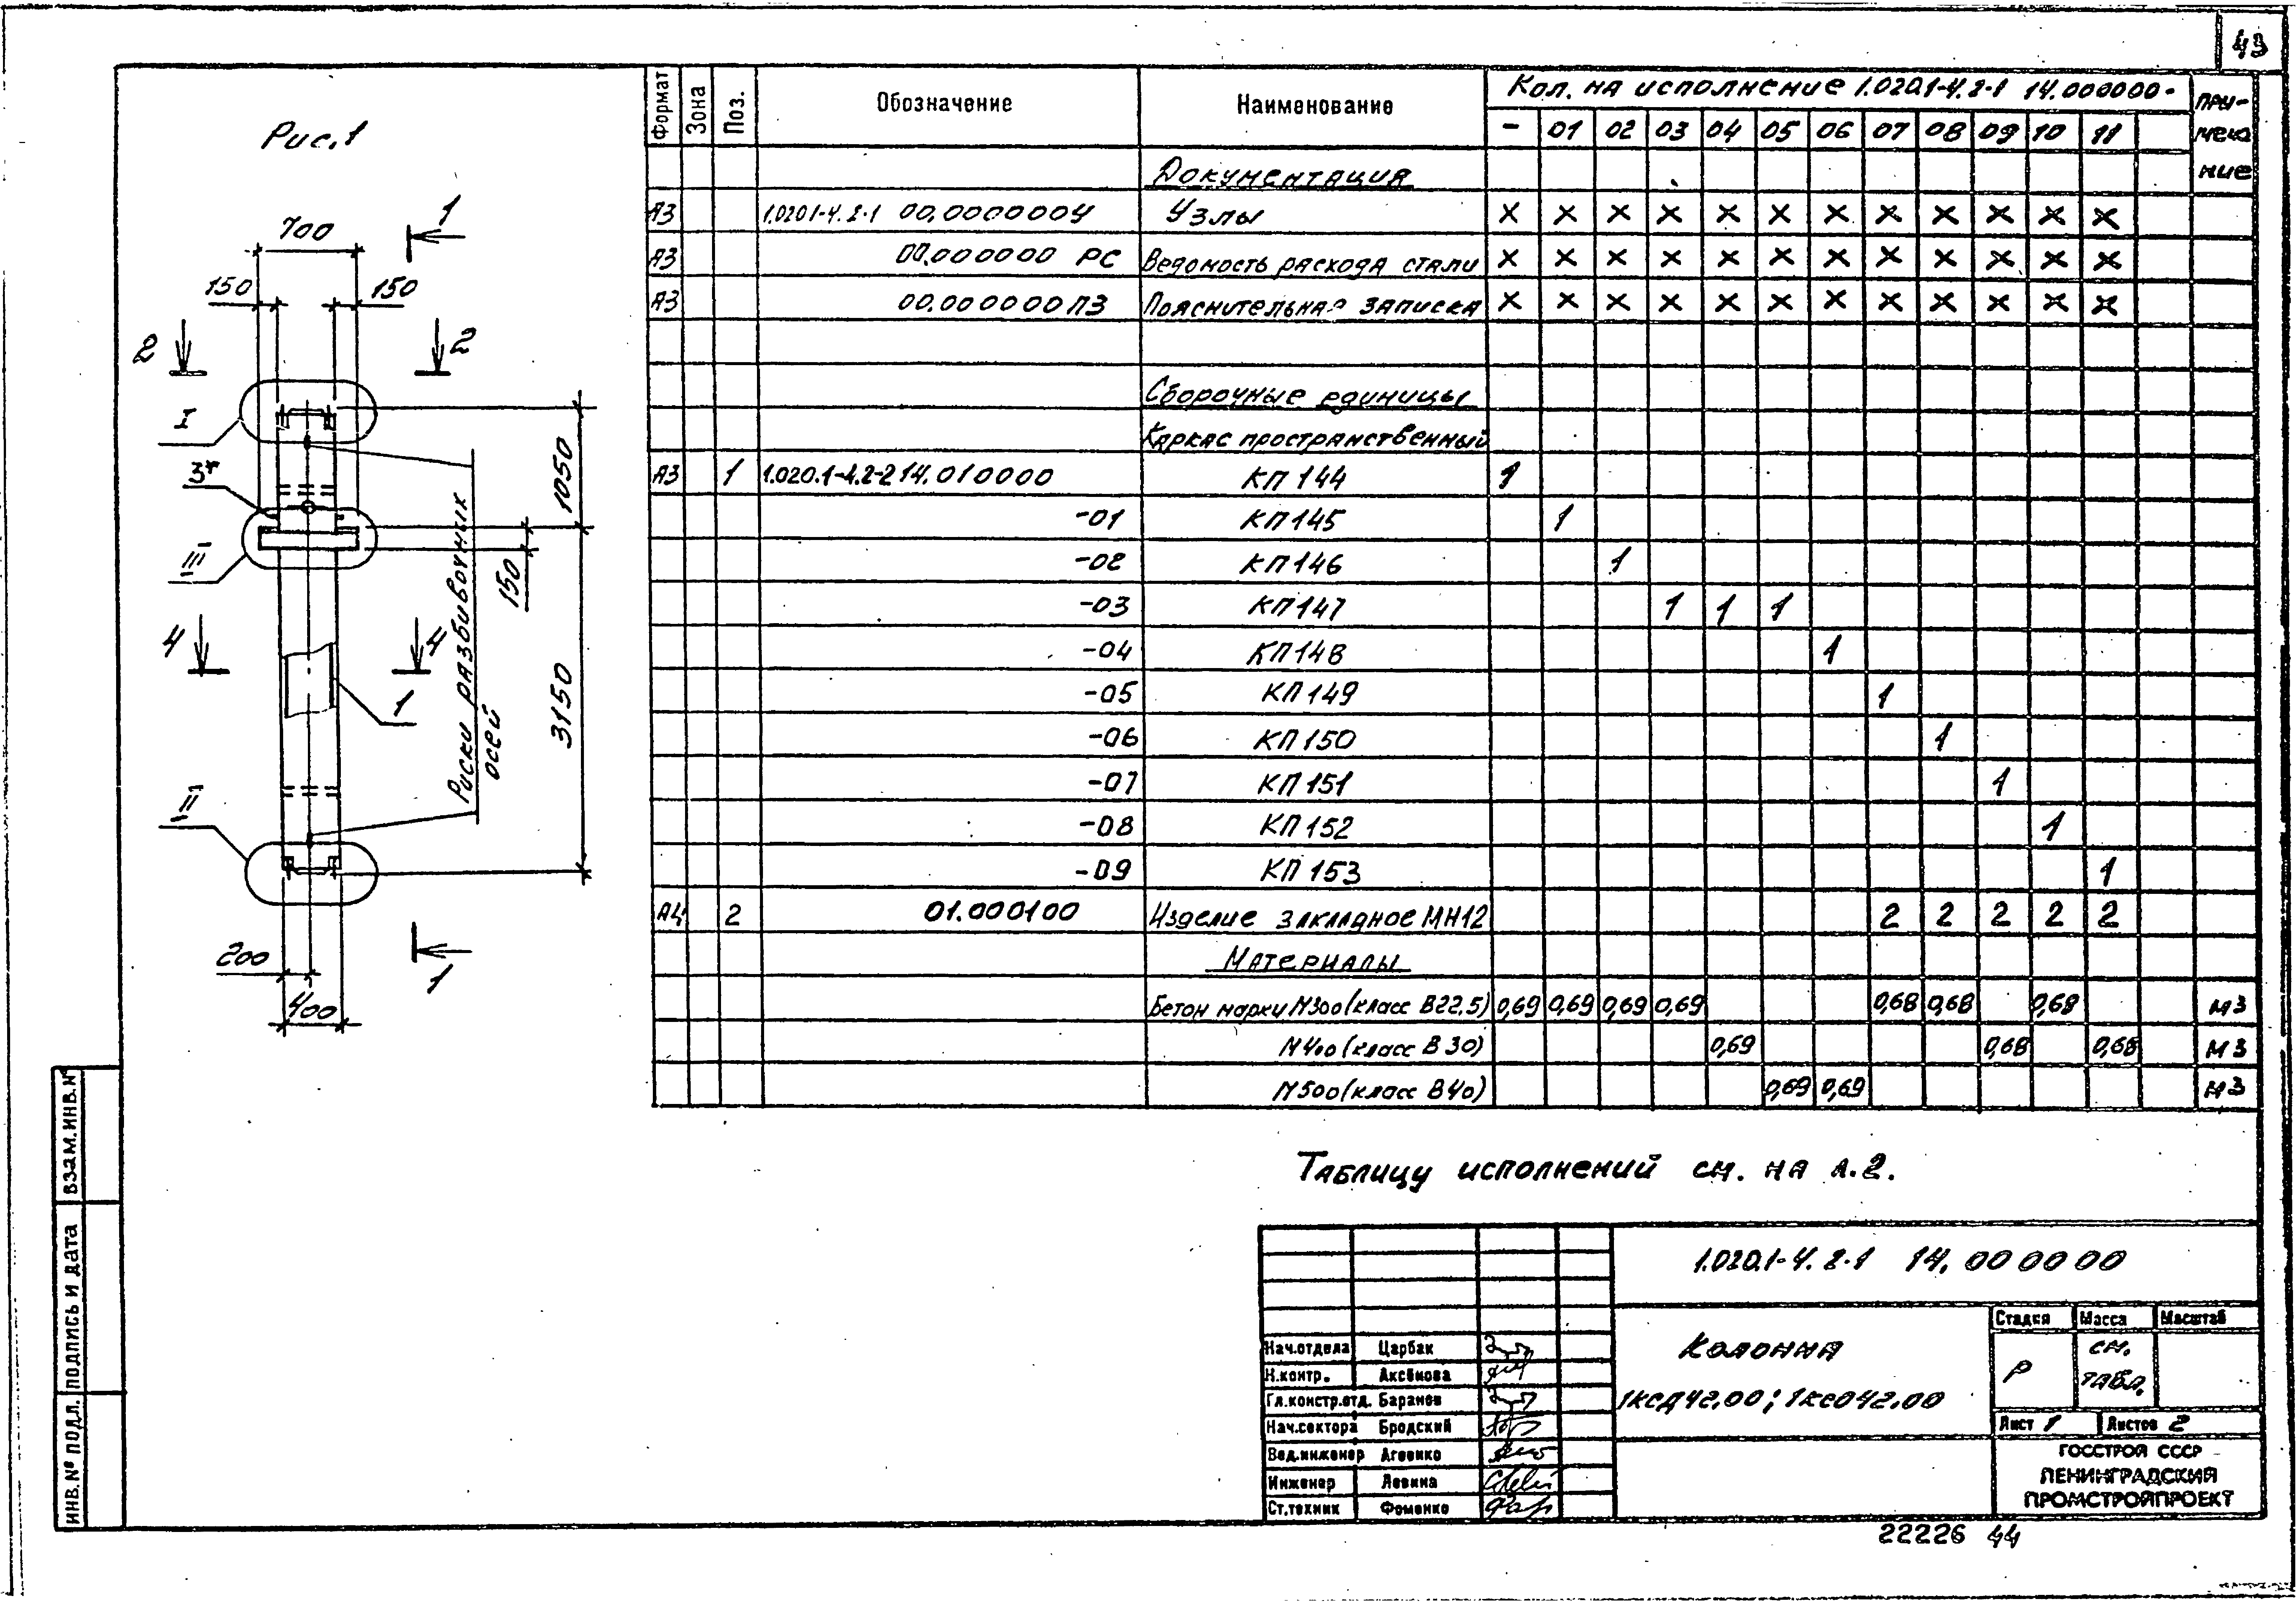 43
Рис.1
700
1
150
150
2
2
I
3*
1050
III
150
4
4
Риски разбивочных
осей
1
3150
II
200
400
1
Формат Зона Поз. Обозначение Наименование Кол. на исполнение 1.020.1-4.2-1 14.000000- Приме-
чание
- 01 02 03 04 05 06 07 08 09 10 11
Документация
А3 1.020.1-4.2-1 00.000000У Узлы × × × × × × × × × × × ×
А3 00.000000 РС Ведомость расхода стали × × × × × × × × × × × ×
А3 00.000000ПЗ Пояснительная записка × × × × × × × × × × × ×
Сборочные единицы
Каркас пространственный
А3 1 1.020.1-4.2-2 14.010000 КП 144 1
-01 КП 145 1
-02 КП 146 1
-03 КП 147 1 1 1
-04 КП 148 1
-05 КП 149 1
-06 КП 150 1
-07 КП 151 1
-08 КП 152 1
-09 КП 153 1
А4 2 01.000100 Изделие закладное МН12 2 2 2 2 2
Материалы
Бетон марки М300 (класс В22.5) 0,69 0,69 0,69 0,69 0,68 0,68 0,68 м3
М400 (класс В30) 0,69 0,68 0,68 м3
М500 (класс В40) 0,69 0,69 м3
Таблицу исполнений см. на л.2.
1.020.1-4.2-1 14.000000
Колонна
1ксд42.00; 1ксо42.00
Стадия Масса Масштаб
Р см.
табл.
Лист 1 Листов 2
ГОССТРОЙ СССР
ЛЕНИНГРАДСКИЙ
ПРОМСТРОЙПРОЕКТ
Нач.отдела Царбак
Н.контр. Аксёнова
Гл.констр.отд. Баранов
Нач.сектора Бродский
Вед.инженер Агеенко
Инженер Левина
Ст.техник Фоменко
ИНВ.№ ПОДЛ. ПОДПИСЬ И ДАТА ВЗАМ.ИНВ.№
22226 44